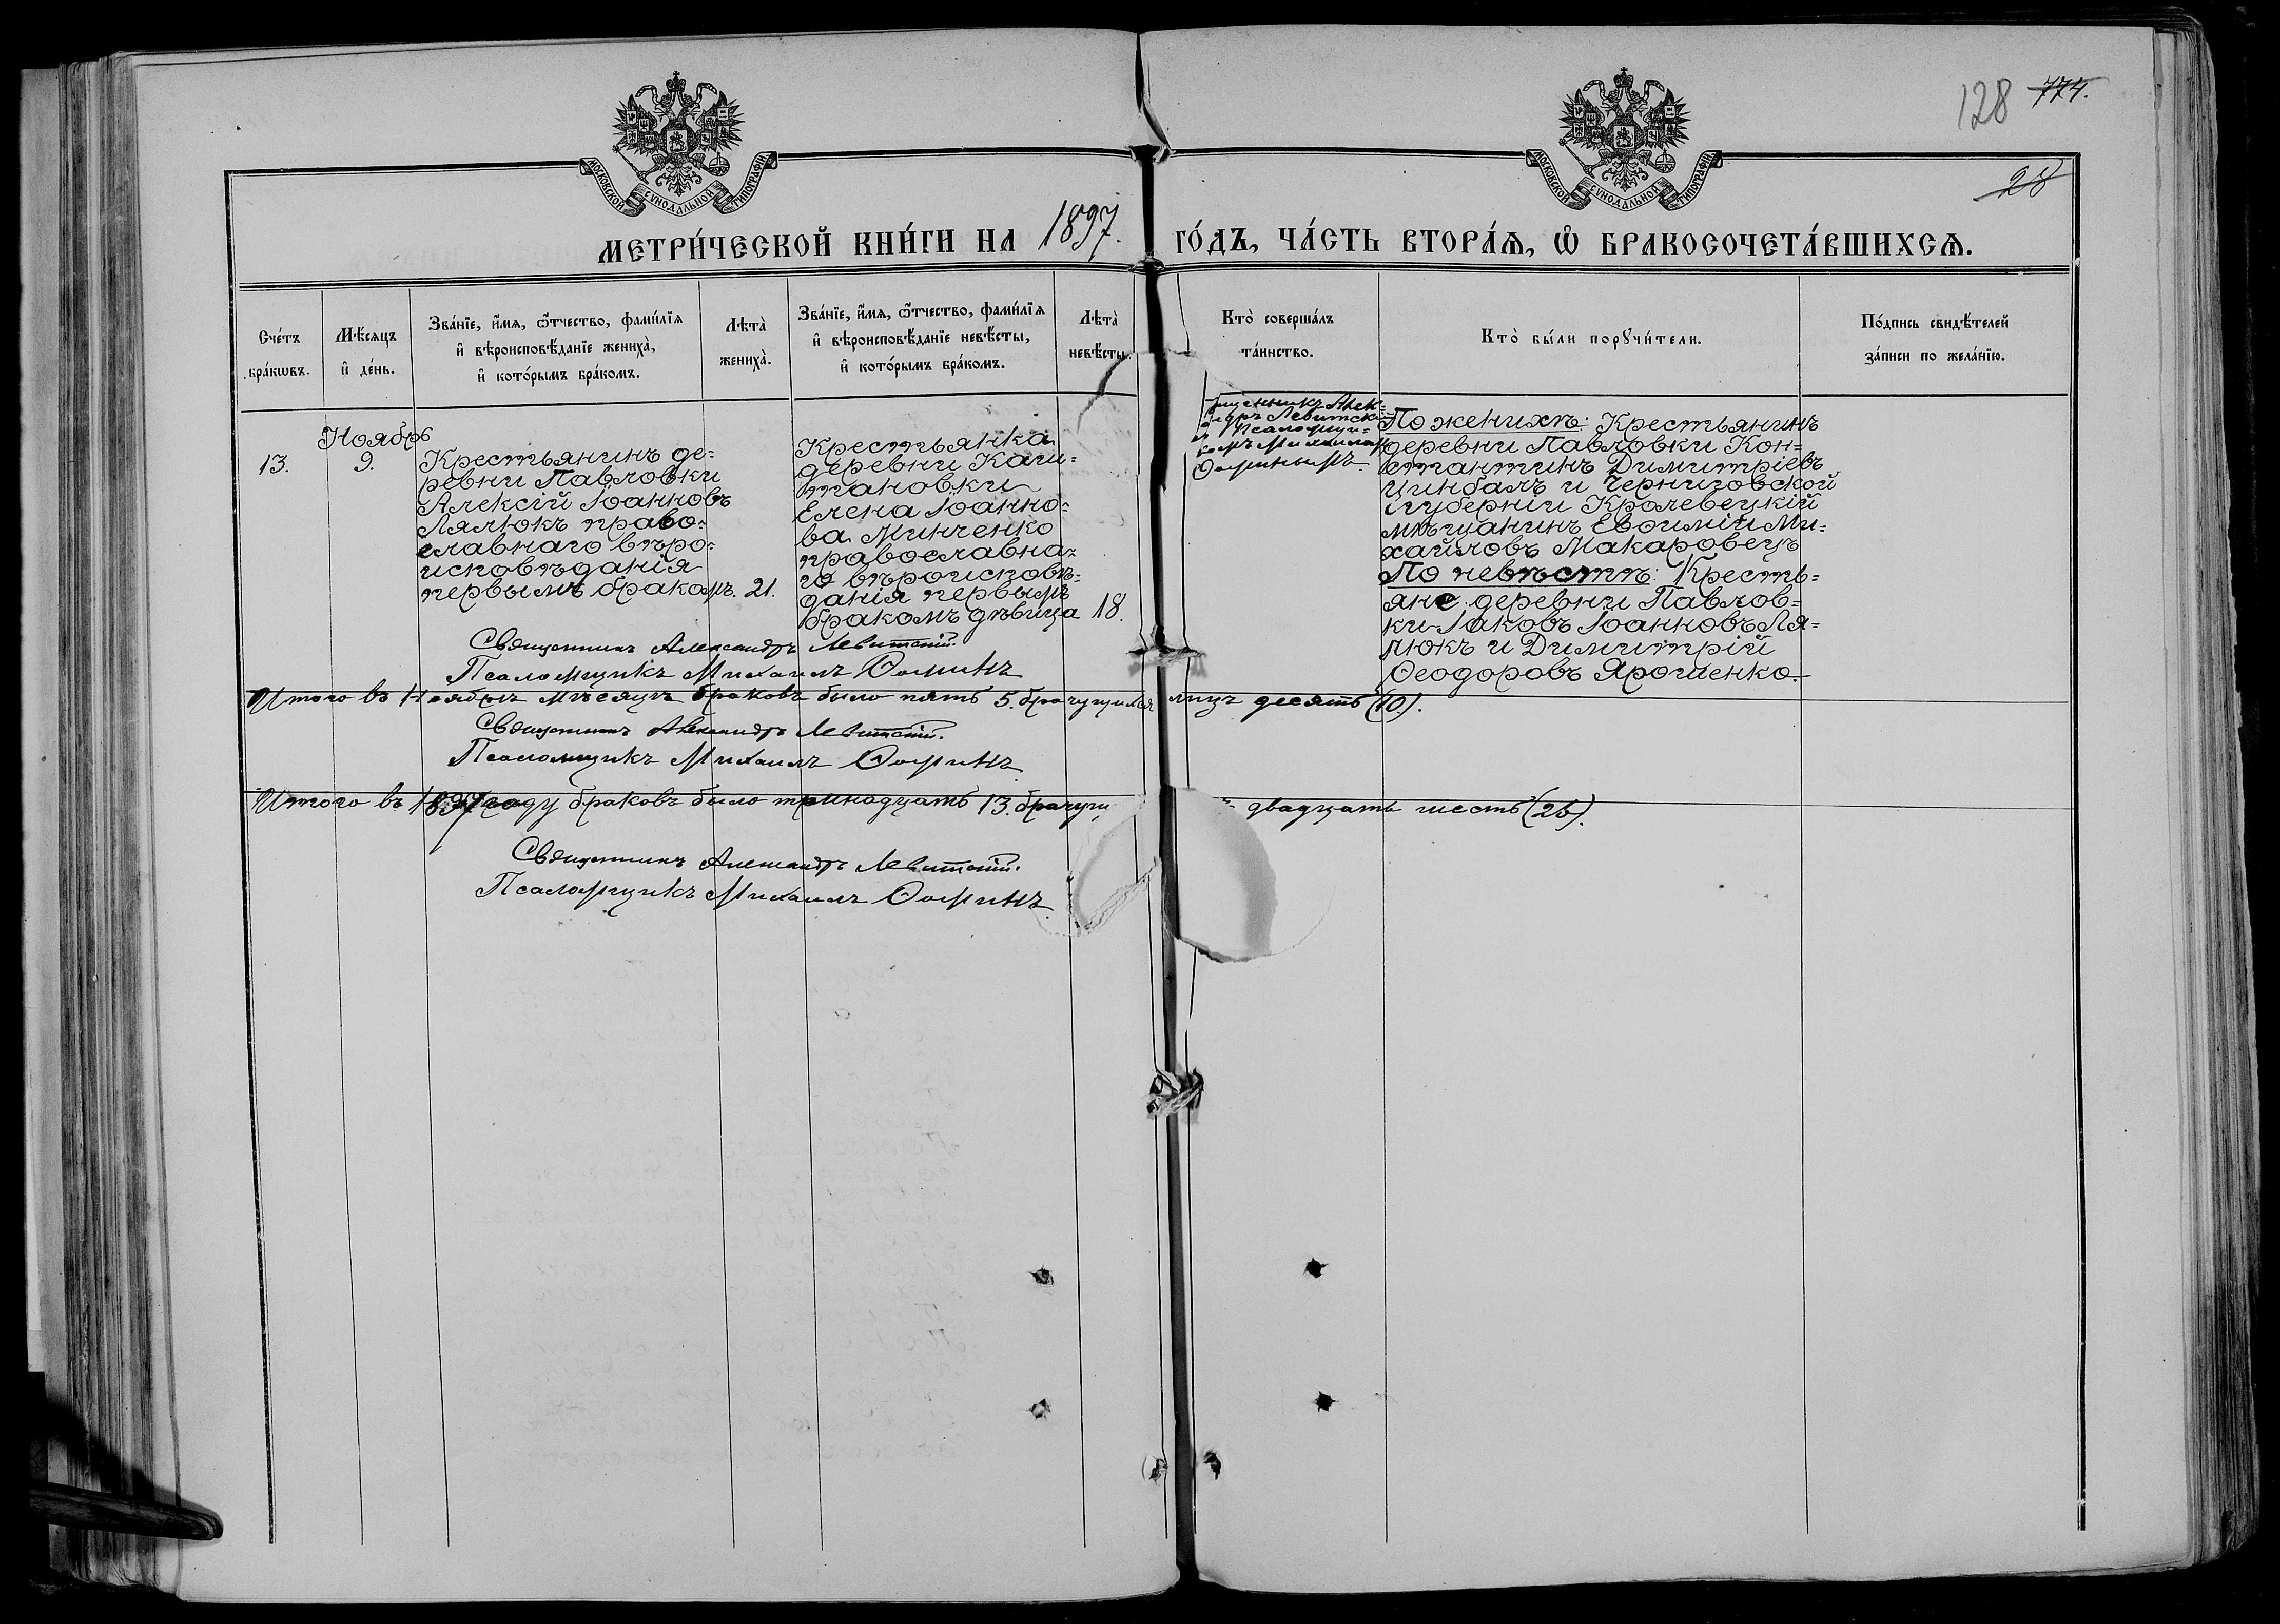 128 774.
28
МОСКОВСКОЙ СѴНОДАЛЬНОЙ ТИПОГРАФІИ
МОСКОВСКОЙ СѴНОДАЛЬНОЙ ТИПОГРАФІИ
МЕТРИ́ЧЕСКОЙ КНИ́ГИ НА 1897. ГО́ДЪ, ЧА́СТЬ ВТОРА́Ѧ, Ѽ БРАКОСОЧЕТА́ВШИХСѦ.
Сче́тъ
бра́кѡвъ.
Мѣ́сяцъ
и҆ де́нь.
Зва́нїе, и҆́мя, ѻ҆́тчество, фами́лїя
и҆ вѣроисповѣ́данїе жениха̀,
и҆ кото́рымъ бра́комъ.
Лѣта̀
жениха̀.
Зва́нїе, и҆́мя, ѻ҆́тчество, фами́лїя
и҆ вѣроисповѣ́данїе невѣ́сты,
и҆ кото́рымъ бра́комъ.
Лѣта̀
невѣ́сты.
Кто̀ соверша́лъ
та́инство.
Кто̀ бы́ли порꙋчи́тели.
По́дпись свидѣ́телей
за́писи по жела́нїю.
13.
Ноябрь
9.
Крестьянинъ де-
ревни Павловки
Алексій Іоанновъ
Лялюкъ право-
славнаго вѣро-
исповѣданія
первымъ бракомъ. 21.
Крестьянка
деревни Капи-
тановки
Елена Іоанно-
ва Минченко
православна-
го вѣроисповѣ-
данія первымъ
бракомъ дѣвица 18.
Алек-
Левитскій
и Псаломщи-
комъ Михаиломъ
Ѳоминымъ.
По женихѣ: Крестьянинъ
деревни Павловки Кон-
стантинъ Димитріевъ
Цинбалъ и Черниговской
губерніи Кролевецкій
мѣщанинъ Евѳимій Ми-
хайловъ Макаровецъ
По невѣстѣ: Кресть-
яне деревни Павлов-
ки Іаковъ Іоанновъ Ля-
люкъ и Димитрій
Ѳеодоровъ Ярошенко.
Священникъ Александръ Левитскій.
Псаломщикъ Михаилъ Ѳоминъ
Итого въ Ноябрѣ мѣсяцѣ браковъ было пять 5. брачущихся лицъ десять (10).
Священникъ Александръ Левитскій.
Псаломщикъ Михаилъ Ѳоминъ
Итого въ 1897 году браковъ было тринадцать 13. брачущ двадцать шесть (26).
Священникъ Александръ Левитскій.
Псаломщикъ Михаилъ Ѳоминъ